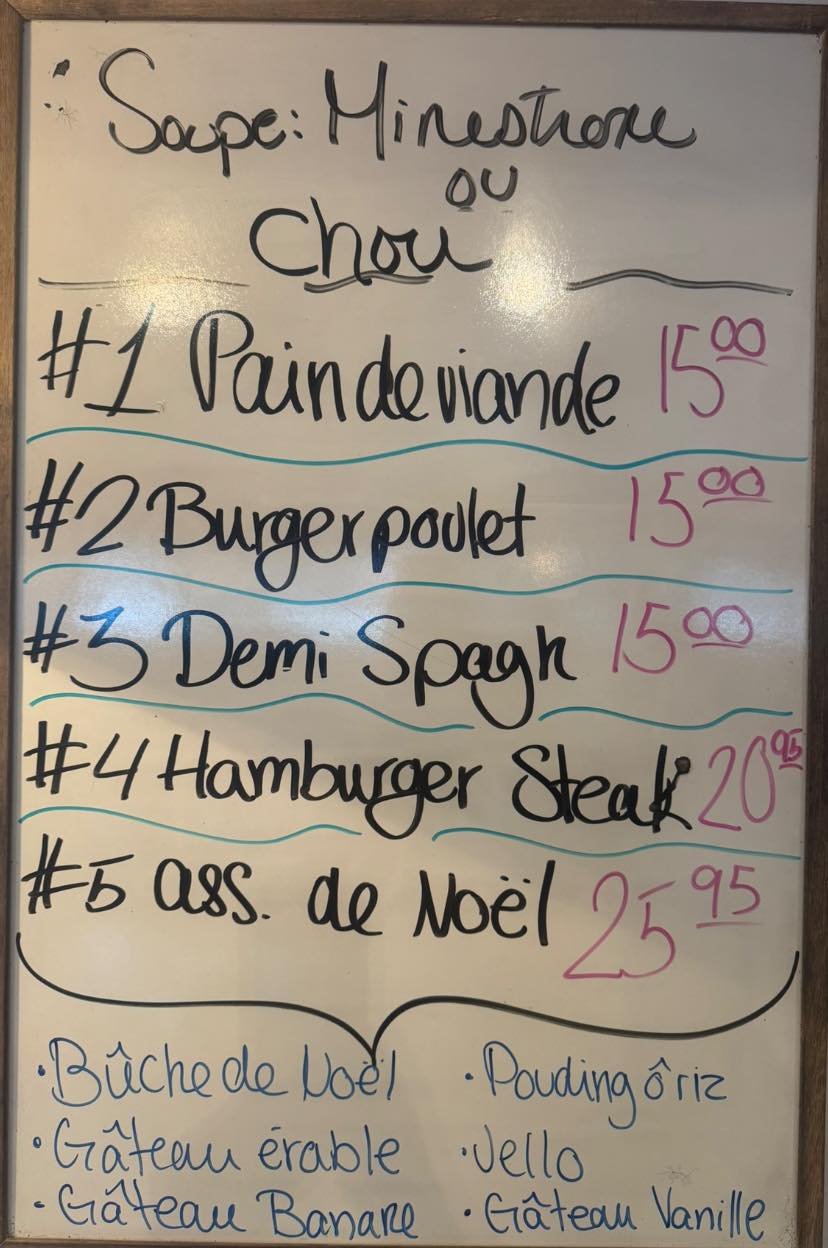 Soupe: Minestrone
ou
Chou
#1 Pain de viande 15 00
#2 Burger poulet 15 00
#3 Demi Spagh 15 00
#4 Hamburger Steak 20 95
#5 ass. de Noël 25 95
· Bûche de Noël
· Gâteau érable
· Gâteau Banane
· Pouding ô riz
· Jello
· Gâteau Vanille